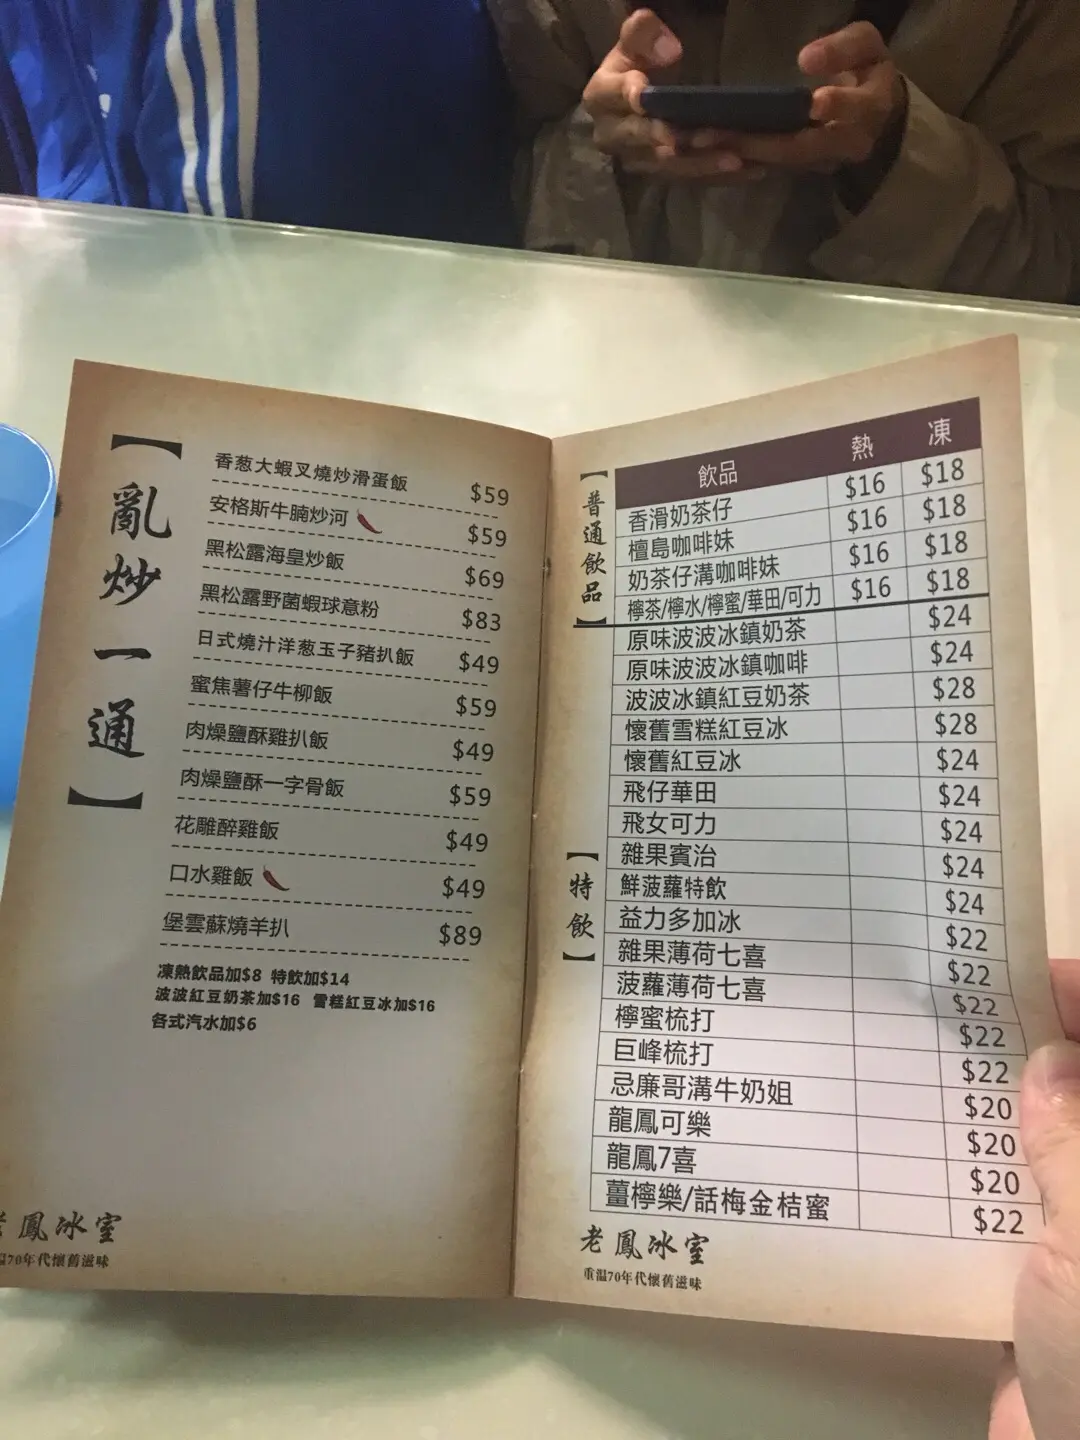 【亂炒一通】
香葱大蝦叉燒炒滑蛋飯 $59
安格斯牛腩炒河 $59
黑松露海皇炒飯 $69
黑松露野菌蝦球意粉 $83
日式燒汁洋葱玉子豬扒飯 $49
蜜焦薯仔牛柳飯 $59
肉燥鹽酥雞扒飯 $49
肉燥鹽酥一字骨飯 $59
花雕醉雞飯 $49
口水雞飯 $49
堡雲蘇燒羊扒 $89
凍熱飲品加$8 特飲加$14
波波紅豆奶茶加$16 雪糕紅豆冰加$16
各式汽水加$6
鳳冰室
溫70年代懷舊滋味
飲品 熱 凍
【普通飲品】
香滑奶茶仔 $16 $18
檀島咖啡妹 $16 $18
奶茶仔溝咖啡妹 $16 $18
檸茶/檸水/檸蜜/華田/可力 $16 $18
【特飲】
原味波波冰鎮奶茶 $24
原味波波冰鎮咖啡 $24
波波冰鎮紅豆奶茶 $28
懷舊雪糕紅豆冰 $28
懷舊紅豆冰 $24
飛仔華田 $24
飛女可力 $24
雜果賓治 $24
鮮菠蘿特飲 $24
益力多加冰 $22
雜果薄荷七喜 $22
菠蘿薄荷七喜 $22
檸蜜梳打 $22
巨峰梳打 $22
忌廉哥溝牛奶姐 $20
龍鳳可樂 $20
龍鳳7喜 $20
薑檸樂/話梅金桔蜜 $22
老鳳冰室
重溫70年代懷舊滋味